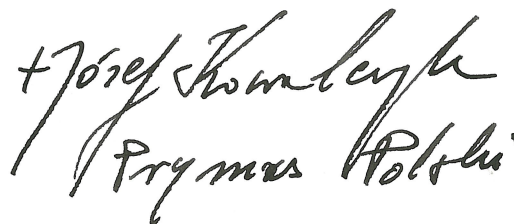 + Józef Kowalczyk
Prymas Polski